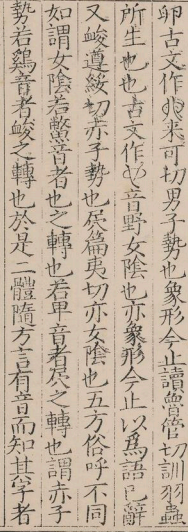 卵古文作𠨍來可切男子勢也象形今止讀魯管切訓羽蟲
所生也也古文作𠃟音野女陰也亦象形今止以爲語已辭
又峻遵綏切赤子勢也㞙篇夷切亦女陰也五方俗呼不同
如謂女陰若鱉音者也之轉也若卑音者㞙之轉也謂赤子
勢若鷄音者峻之轉也於是二體隨方言有音而知其字者